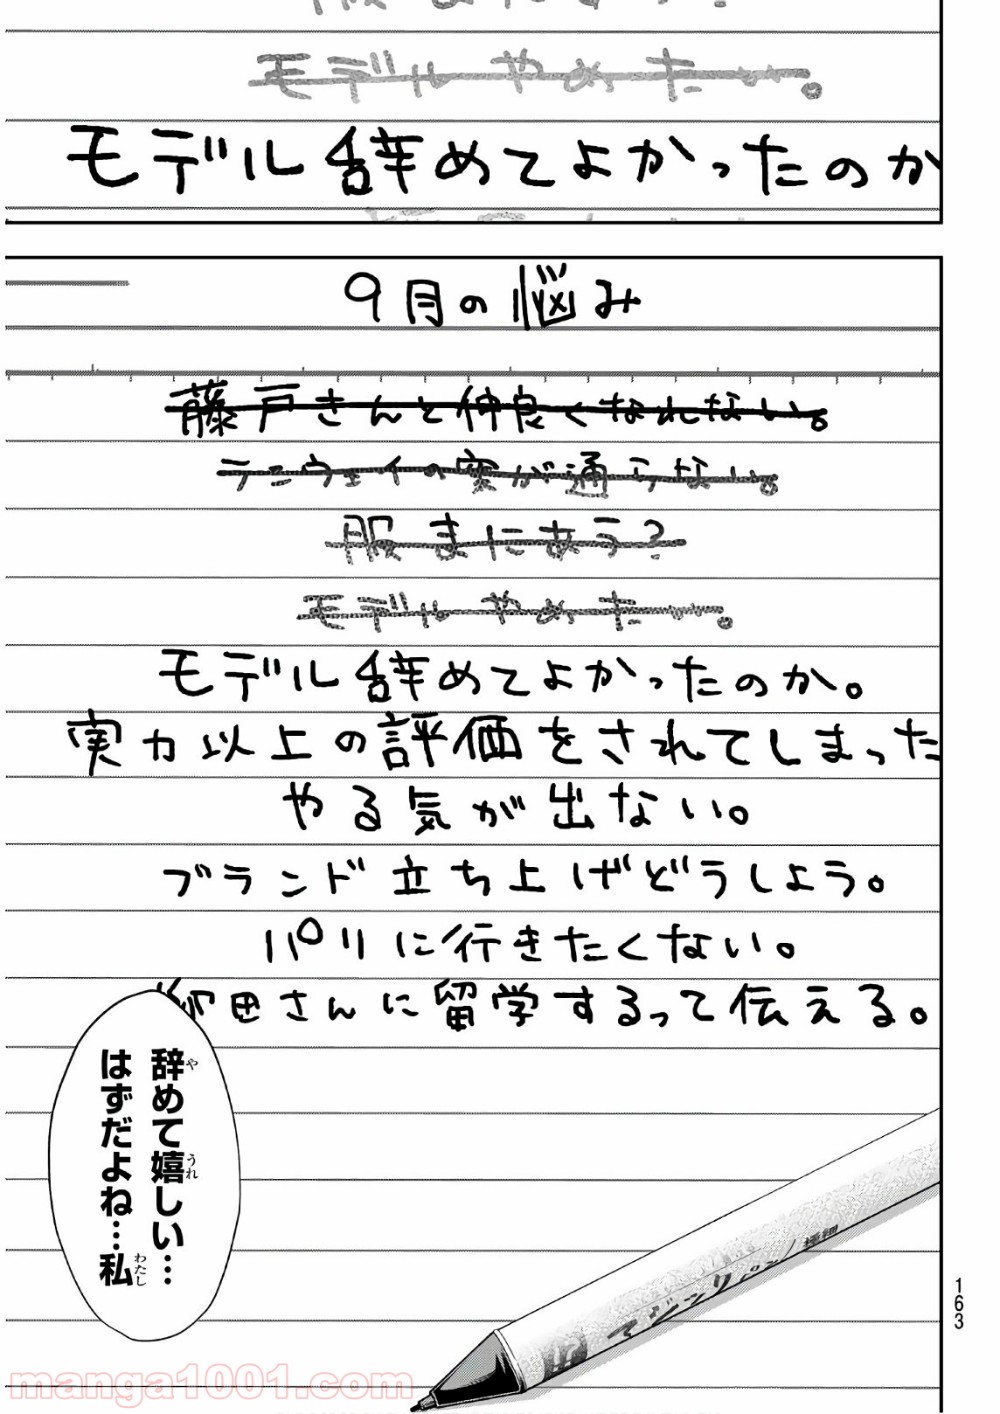 服まにあう?
モデルやめたい。
モデル辞めてよかったのか
9月の悩み
藤戸さんと仲良くなれない。
ランウェイの案が通らない。
服まにあう?
モデルやめたい。
モデル辞めてよかったのか。
実力以上の評価をされてしまった
やる気が出ない。
ブランド立ち上げどうしよう。
パリに行きたくない。
柳田さんに留学するって伝える。
辞めて嬉しい…
はずだよね…私
マジックペン/極細
163
manga1001.com